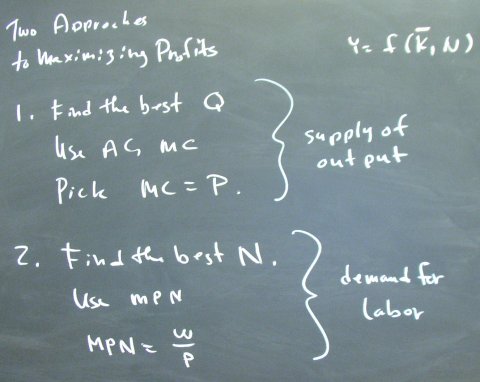 Two Approaches
to Maximizing Profits
Y = f (K̄, N)
1. Find the best Q
Use AC, MC
Pick MC = P.
supply of
output
2. Find the best N.
Use MPN
MPN = w/P
demand for
labor